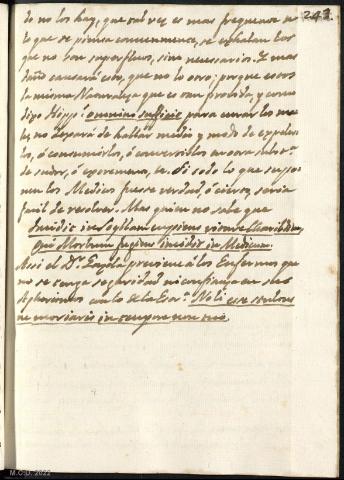 243.
do no los hay, que tal vez es mas frequente de
lo que se piensa comunmente, se exhalan los
que no son superfluos, sino necessarios. Y mas
daño causará con, que no lo otro: porque es
la misma Naturaleza que es tan provida, y como
dize Hipp.s omnino sufficit para curar los ma
les, no dexará de hallar medio y modo de expeler
los, ó consumirlos, ó convertirlos en otra subst.ª
de sudor, ó excrementos, &. Si todo lo que supo
nen los Medicos fuese verdad, ó cierto, seria
facil de resolver. Mas quien no sabe que
Incidit in Scyllam cupiens vitare Charibdim,
Qui Morbum fugiens incidit in Medicum.
Assi el D.r previene á los Enfermos que
no se tenga seguridad ni confianza en sus
Aphorismos con lo de la Esc.ª Noli esse stultus
ne moriaris in tempore non tuo.
M.C.D. 2022